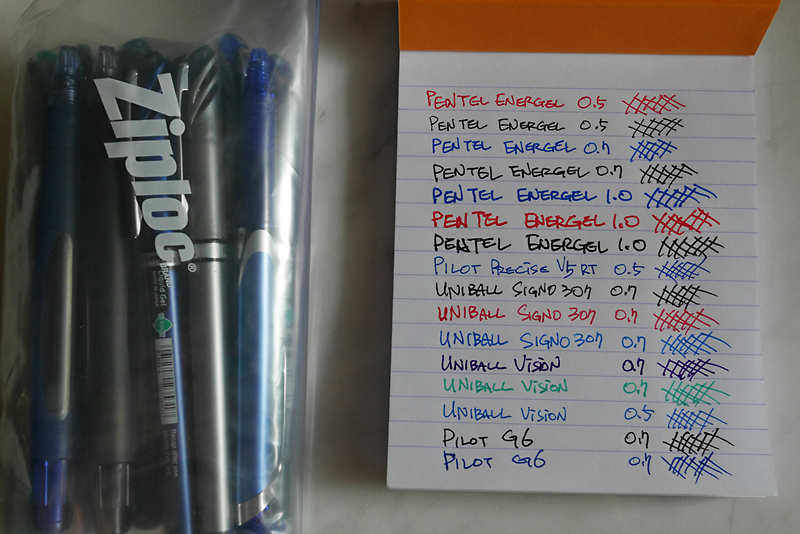 Ziploc®
BRAND
Liquid Gel
PENTEL ENERGEL 0.5
PENTEL ENERGEL 0.5
PENTEL ENERGEL 0.7
PENTEL ENERGEL 0.7
PENTEL ENERGEL 1.0
PENTEL ENERGEL 1.0
PENTEL ENERGEL 1.0
PILOT PRECISE V5 RT 0.5
UNIBALL SIGNO 307 0.7
UNIBALL SIGNO 307 0.7
UNIBALL SIGNO 307 0.7
UNIBALL VISION 0.7
UNIBALL VISION 0.7
UNIBALL VISION 0.5
PILOT G6 0.7
PILOT G6 0.7